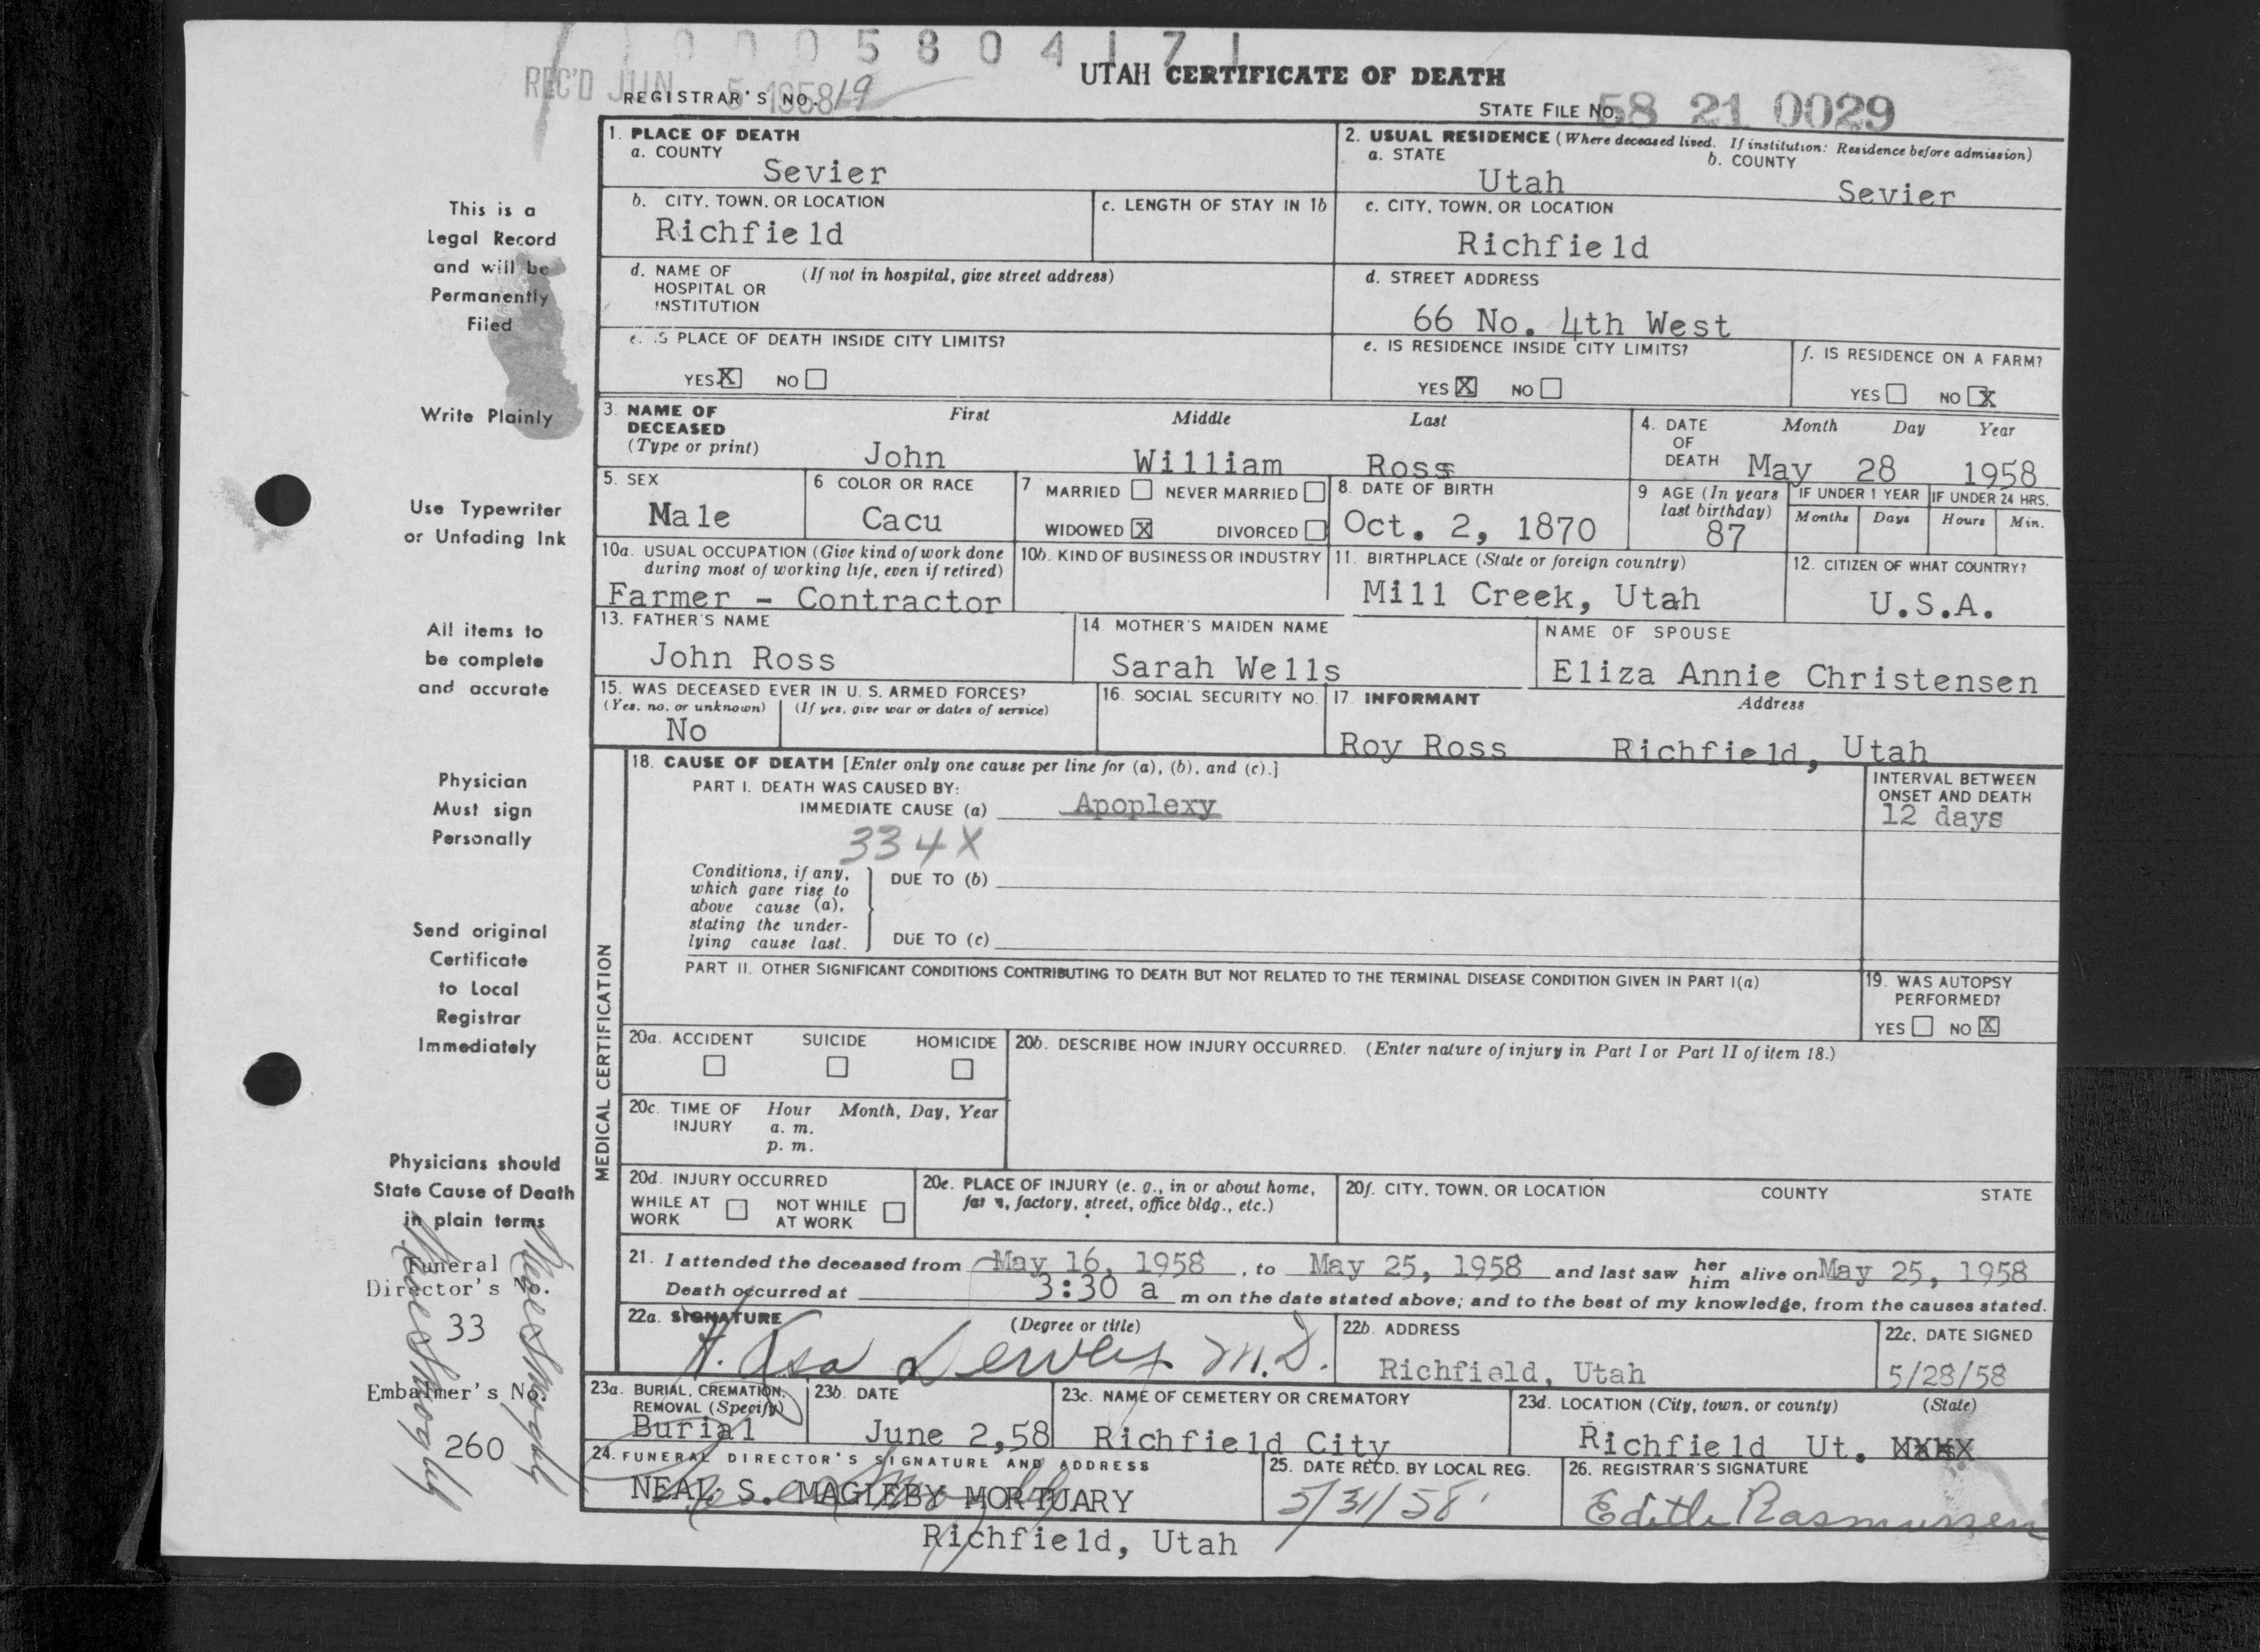 0 0 0 5 8 0 4 1 7 1
REC'D JUN 5 1958
UTAH CERTIFICATE OF DEATH
REGISTRAR'S NO. 19
STATE FILE NO. 58 21 0029
1. PLACE OF DEATH
a. COUNTY
Sevier
2. USUAL RESIDENCE (Where deceased lived. If institution: Residence before admission)
a. STATE
Utah
b. COUNTY
Sevier
b. CITY, TOWN, OR LOCATION
Richfield
c. LENGTH OF STAY IN 1b
c. CITY, TOWN, OR LOCATION
Richfield
d. NAME OF HOSPITAL OR INSTITUTION
(If not in hospital, give street address)
d. STREET ADDRESS
66 No. 4th West
e. IS PLACE OF DEATH INSIDE CITY LIMITS?
YES X NO
e. IS RESIDENCE INSIDE CITY LIMITS?
YES X NO
f. IS RESIDENCE ON A FARM?
YES NO X
3. NAME OF DECEASED
(Type or print)
First Middle Last
John William Ross
4. DATE OF DEATH
Month Day Year
May 28 1958
5. SEX
Male
6 COLOR OR RACE
Cacu
7 MARRIED NEVER MARRIED
WIDOWED X DIVORCED
8. DATE OF BIRTH
Oct. 2, 1870
9 AGE (In years last birthday)
87
IF UNDER 1 YEAR
Months Days
IF UNDER 24 HRS.
Hours Min.
10a. USUAL OCCUPATION (Give kind of work done during most of working life, even if retired)
Farmer - Contractor
10b. KIND OF BUSINESS OR INDUSTRY
11. BIRTHPLACE (State or foreign country)
Mill Creek, Utah
12. CITIZEN OF WHAT COUNTRY?
U.S.A.
13. FATHER'S NAME
John Ross
14. MOTHER'S MAIDEN NAME
Sarah Wells
NAME OF SPOUSE
Eliza Annie Christensen
15. WAS DECEASED EVER IN U. S. ARMED FORCES?
(Yes, no, or unknown) (If yes, give war or dates of service)
No
16. SOCIAL SECURITY NO.
17. INFORMANT
Address
Roy Ross Richfield, Utah
MEDICAL CERTIFICATION
18. CAUSE OF DEATH [Enter only one cause per line for (a), (b), and (c).]
PART I. DEATH WAS CAUSED BY:
IMMEDIATE CAUSE (a) Apoplexy
INTERVAL BETWEEN ONSET AND DEATH
12 days
334X
Conditions, if any, which gave rise to above cause (a), stating the underlying cause last.
DUE TO (b)
DUE TO (c)
PART II. OTHER SIGNIFICANT CONDITIONS CONTRIBUTING TO DEATH BUT NOT RELATED TO THE TERMINAL DISEASE CONDITION GIVEN IN PART I(a)
19. WAS AUTOPSY PERFORMED?
YES NO X
20a. ACCIDENT SUICIDE HOMICIDE
20b. DESCRIBE HOW INJURY OCCURRED. (Enter nature of injury in Part I or Part II of item 18.)
20c. TIME OF INJURY
Hour Month, Day, Year
a. m.
p. m.
20d. INJURY OCCURRED
WHILE AT WORK NOT WHILE AT WORK
20e. PLACE OF INJURY (e. g., in or about home, farm, factory, street, office bldg., etc.)
20f. CITY, TOWN, OR LOCATION COUNTY STATE
21. I attended the deceased from May 16, 1958, to May 25, 1958 and last saw her him alive on May 25, 1958
Death occurred at 3:30 a m on the date stated above; and to the best of my knowledge, from the causes stated.
22a. SIGNATURE
(Degree or title)
H. Asa Dewey M.D.
22b. ADDRESS
Richfield, Utah
22c. DATE SIGNED
5/28/58
23a. BURIAL, CREMATION, REMOVAL (Specify)
Burial
23b. DATE
June 2,58
23c. NAME OF CEMETERY OR CREMATORY
Richfield City
23d. LOCATION (City, town, or county) (State)
Richfield Ut. XXXX
24. FUNERAL DIRECTOR'S SIGNATURE AND ADDRESS
NEAL S. MAGLEBY MORTUARY
Richfield, Utah
25. DATE RECD. BY LOCAL REG.
5/31/58
26. REGISTRAR'S SIGNATURE
Edith Rasmussen
This is a
Legal Record
and will be
Permanently
Filed
Write Plainly
Use Typewriter
or Unfading Ink
All items to
be complete
and accurate
Physician
Must sign
Personally
Send original
Certificate
to Local
Registrar
Immediately
Physicians should
State Cause of Death
in plain terms
Funeral
Director's No.
33
Embalmer's No.
260